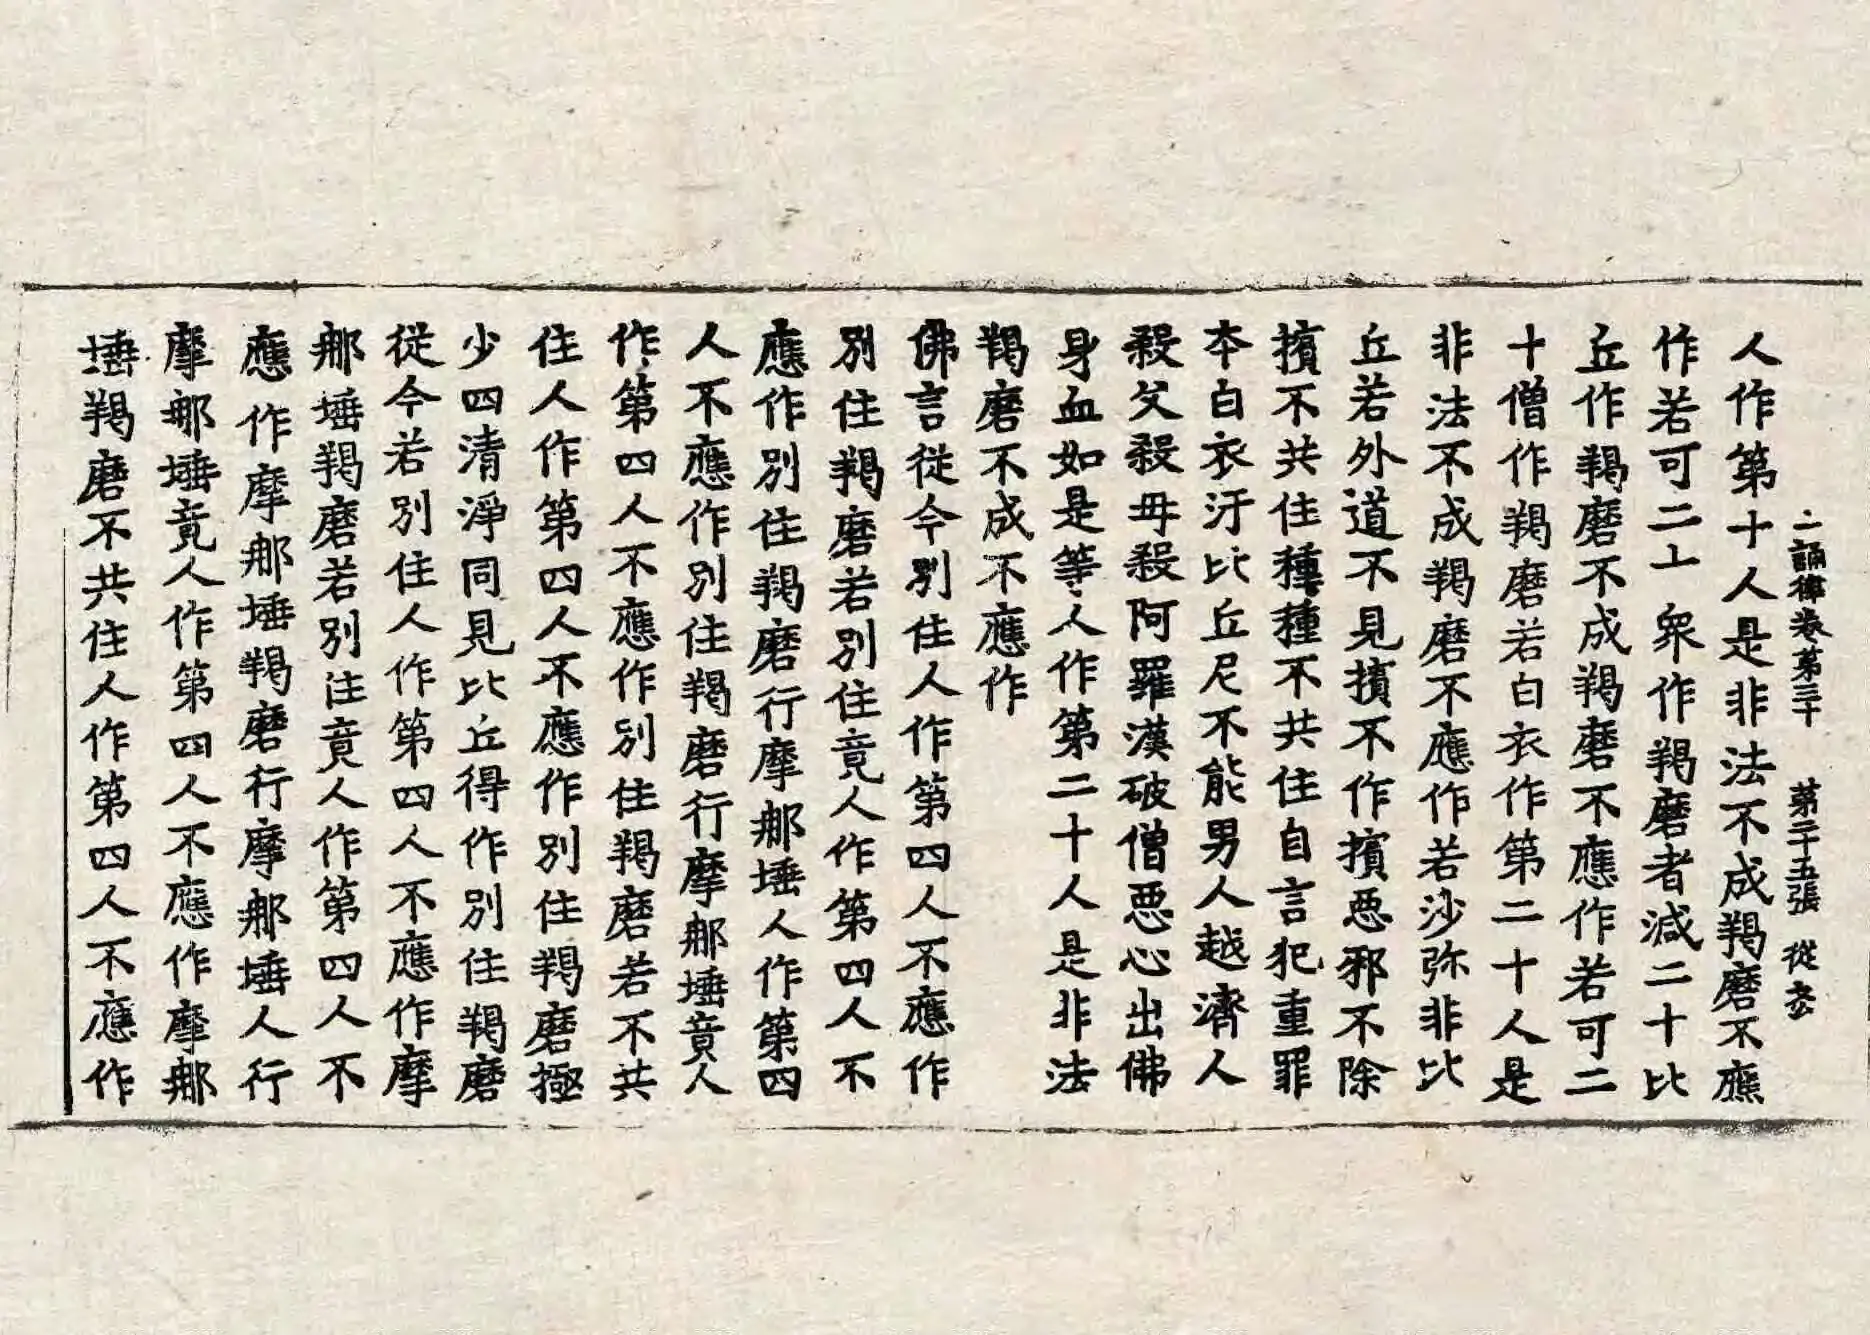 二誦律卷第三十 第二十五張 從
人作第十人是非法不成羯磨不應
作若可二十衆作羯磨者減二十比
丘作羯磨不成羯磨不應作若可二
十僧作羯磨若白衣作第二十人是
非法不成羯磨不應作若沙弥非比
丘若外道不見擯不作擯惡邪不除
擯不共住種種不共住自言犯重罪
本白衣汙比丘尼不能男人越濟人
殺父殺母殺阿羅漢破僧惡心出佛
身血如是等人作第二十人是非法
羯磨不成不應作
佛言從今別住人作第四人不應作
別住羯磨若別住竟人作第四人不
應作別住羯磨行摩那埵人作第四
人不應作別住羯磨行摩那埵竟人
作第四人不應作別住羯磨若不共
住人作第四人不應作別住羯磨極
少四清淨同見比丘得作別住羯磨
從今若別住人作第四人不應作摩
那埵羯磨若別住竟人作第四人不
應作摩那埵羯磨行摩那埵人行
摩那埵竟人作第四人不應作摩那
埵羯磨不共住人作第四人不應作